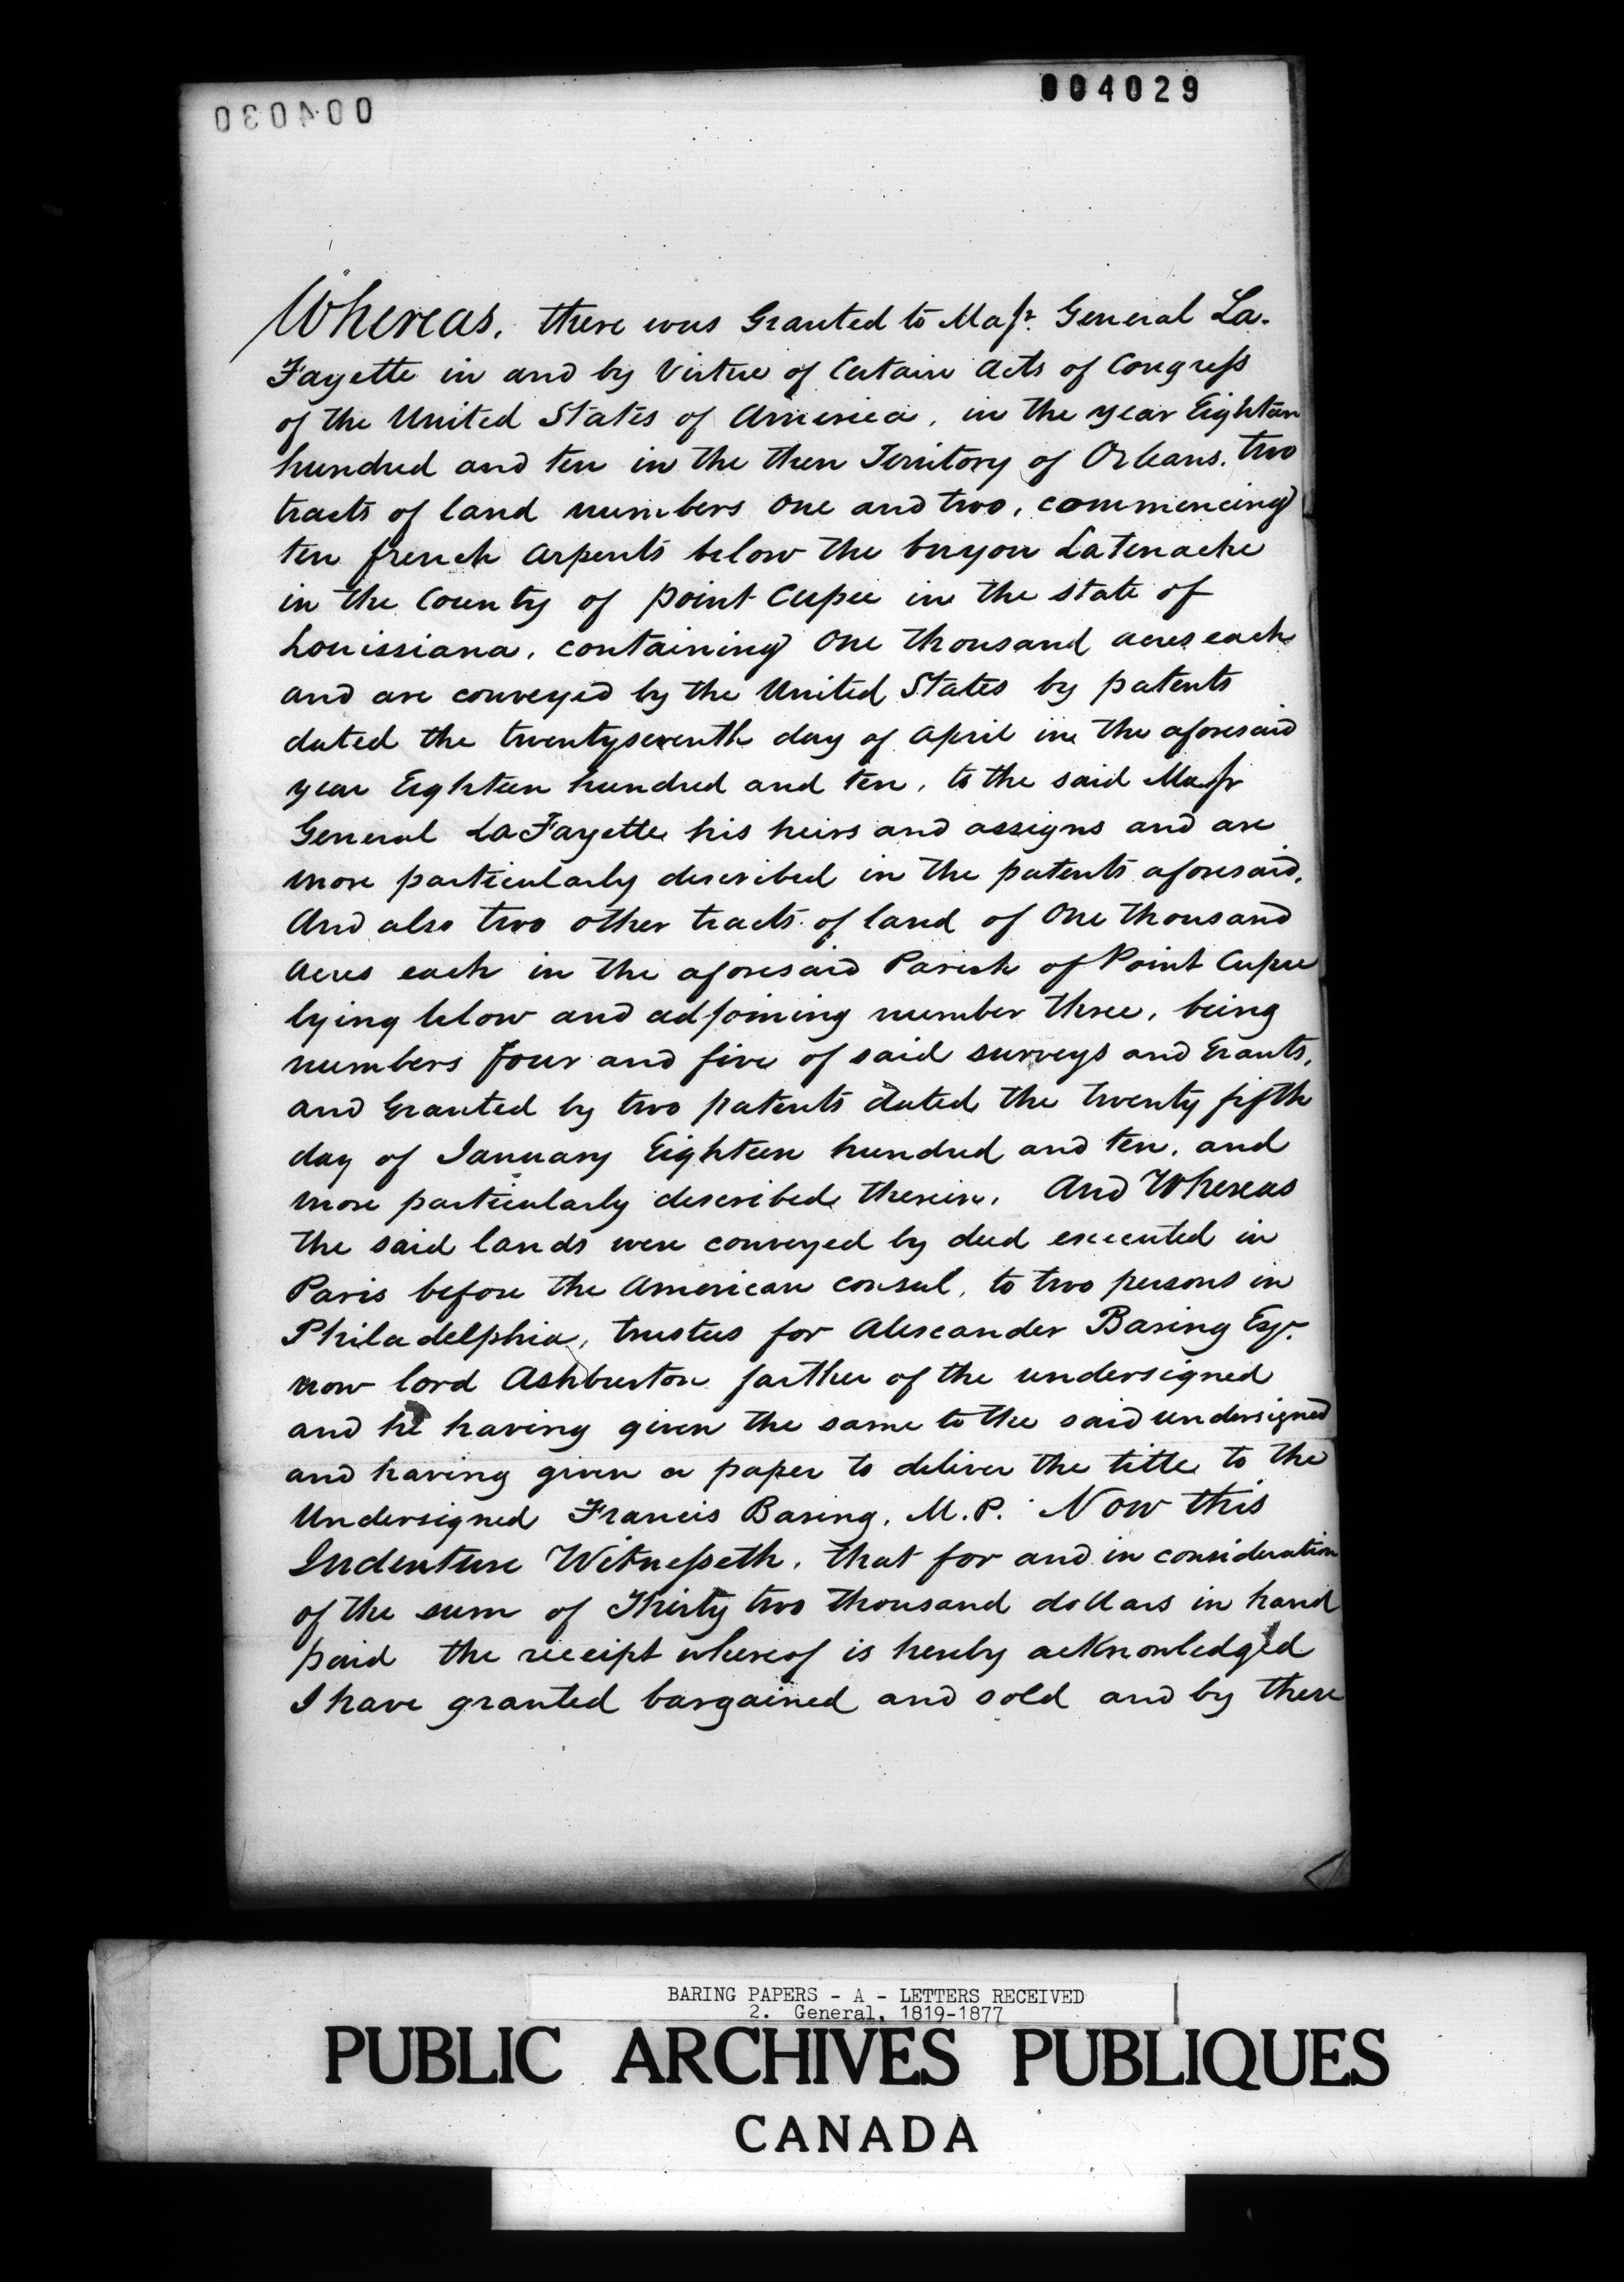 004029
004030
Whereas, there was Granted to Majr. General La-
Fayette in and by Virtue of Certain Acts of Congress
of the United States of America, in the year Eighteen
hundred and ten in the then Territory of Orleans, two
tracts of land numbers One and two, commencing
ten french Arpents below the buyou Latenache
in the County of point Cupee in the state of
Louissiana, containing One thousand acres each
and are conveyed by the United States by patents
dated the twentyseventh day of April in the aforesaid
year Eighteen hundred and ten, to the said Majr
General LaFayette his heirs and assigns and are
more particularly described in the patents aforesaid,
And also two other tracts of land of One thousand
Acres each in the aforesaid Parish of Point Cupee
lying below and adjoining number three, being
numbers four and five of said surveys and Grants,
and Granted by two patents dated the twenty fifth
day of January Eighteen hundred and ten, and
more particularly described therein. And Whereas
the said lands were conveyed by deed executed in
Paris before the American consul, to two persons in
Philadelphia, trustees for Alexander Baring Esqr.
now lord Ashburton farther of the undersigned
and he having given the same to the said undersigned
and having given a paper to deliver the title to the
Undersigned Francis Baring, M.P. Now this
Indenture Witnesseth, that for and in consideration
of the sum of Thirty two thousand dollars in hand
paid the receipt whereof is hereby acknowledged
I have granted bargained and sold and by these
BARING PAPERS - A - LETTERS RECEIVED
2. General, 1819-1877
PUBLIC ARCHIVES PUBLIQUES
CANADA